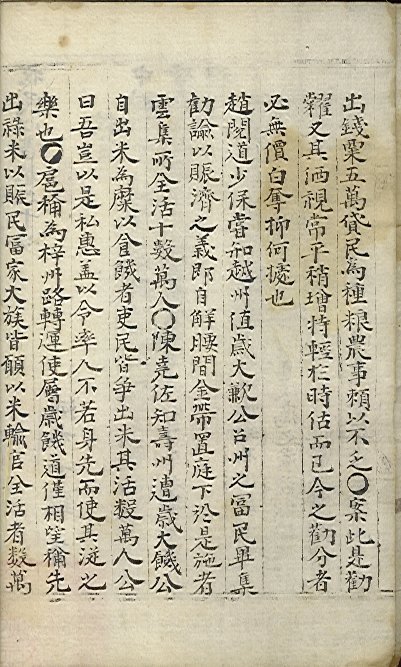 出錢粟五萬貸民為種粮農事賴以不乏○案此是勸
糶又其洒視常平稍增特輕於時估而已今之勸分者
必無價白奪抑何據也
趙閱道少保嘗知越州值歲大歉公召州之富民畢集
勸諭以賑濟之義即自解腰間金帶置庭下於是施者
雲集所全活十數萬人○陳堯佐知壽州遭歲大饑公
自出米為糜以食餓者吏民皆爭出米其活數萬人公
曰吾豈以是私惠盖以令率人不若身先而使其從之
樂也○扈稱為梓州路轉運使屬歲饑道僅相望稱先
出祿米以賑民富家大族皆願以米輸官全活者數萬